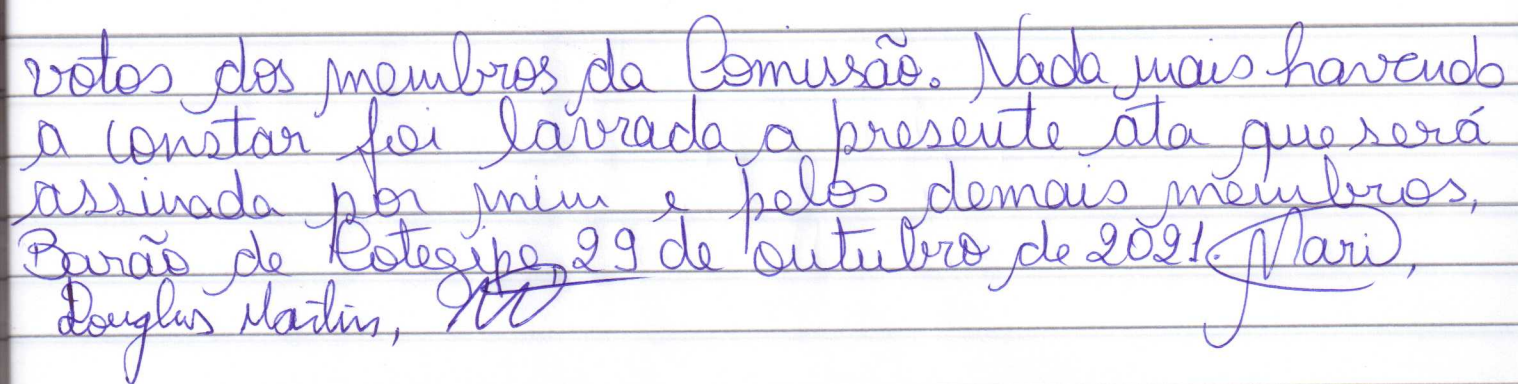 votos dos membros da Comissão. Nada mais havendo
a constar foi lavrada a presente ata que será
assinada por mim e pelos demais membros,
Barão de Cotegipe, 29 de outubro de 2021. Mari,
Douglas Martin,